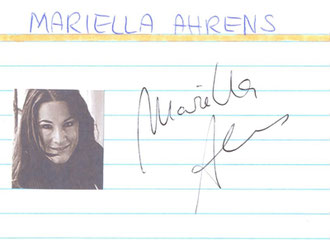 MARIELLA AHRENS
Mariella
Ahrens